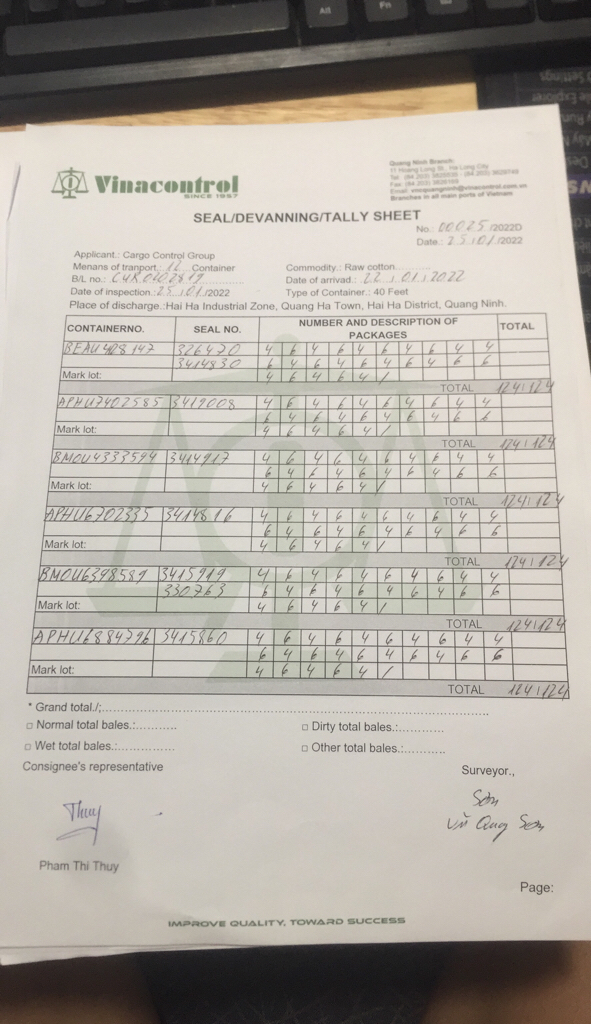 Alt
Fn
Vinacontrol
SINCE 1957
Quang Ninh Branch:
Branches in all main ports of Vietnam
SEAL/DEVANNING/TALLY SHEET
No.: 00025/2022D
Date.: 25/01/2022
Applicant.: Cargo Control Group
Menans of tranport.: 12 Container
Commodity.: Raw cotton
B/L no.:
Date of arrivad.: 22/01/2022
Date of inspection.: 25/01/2022
Type of Container.: 40 Feet
Place of discharge.:Hai Ha Industrial Zone, Quang Ha Town, Hai Ha District, Quang Ninh.
CONTAINERNO. SEAL NO. NUMBER AND DESCRIPTION OF PACKAGES TOTAL
326470 4 6 4 6 4 6 4 6 4 4
3414830 6 4 6 4 6 4 6 4 6 6
Mark lot: 4 6 4 6 4 /
TOTAL 124/124
APHU7402585 3412008 4 6 4 6 4 6 4 6 4 4
6 4 6 4 6 4 6 4 6 6
Mark lot: 4 6 4 6 4 /
TOTAL 124/124
BMOU4333594 3414917 4 6 4 6 4 6 4 6 4 4
6 4 6 4 6 4 6 4 6 6
Mark lot: 4 6 4 6 4 /
TOTAL 124/124
APHU6702335 3414816 4 6 4 6 4 6 4 6 4 4
6 4 6 4 6 4 6 4 6 6
Mark lot: 4 6 4 6 4 /
TOTAL 124/124
BMOU6398589 3415919 4 6 4 6 4 6 4 6 4 4
330763 6 4 6 4 6 4 6 4 6 6
Mark lot: 4 6 4 6 4 /
TOTAL 124/124
APHU6884796 3415860 4 6 4 6 4 6 4 6 4 4
6 4 6 4 6 4 6 4 6 6
Mark lot: 4 6 4 6 4 /
TOTAL 124/124
* Grand total./:
□ Normal total bales.:
□ Dirty total bales.:
□ Wet total bales.:
□ Other total bales.:
Consignee's representative
Surveyor.,
Thuy
Sơn
Vũ Quang Sơn
Pham Thi Thuy
Page:
IMPROVE QUALITY, TOWARD SUCCESS